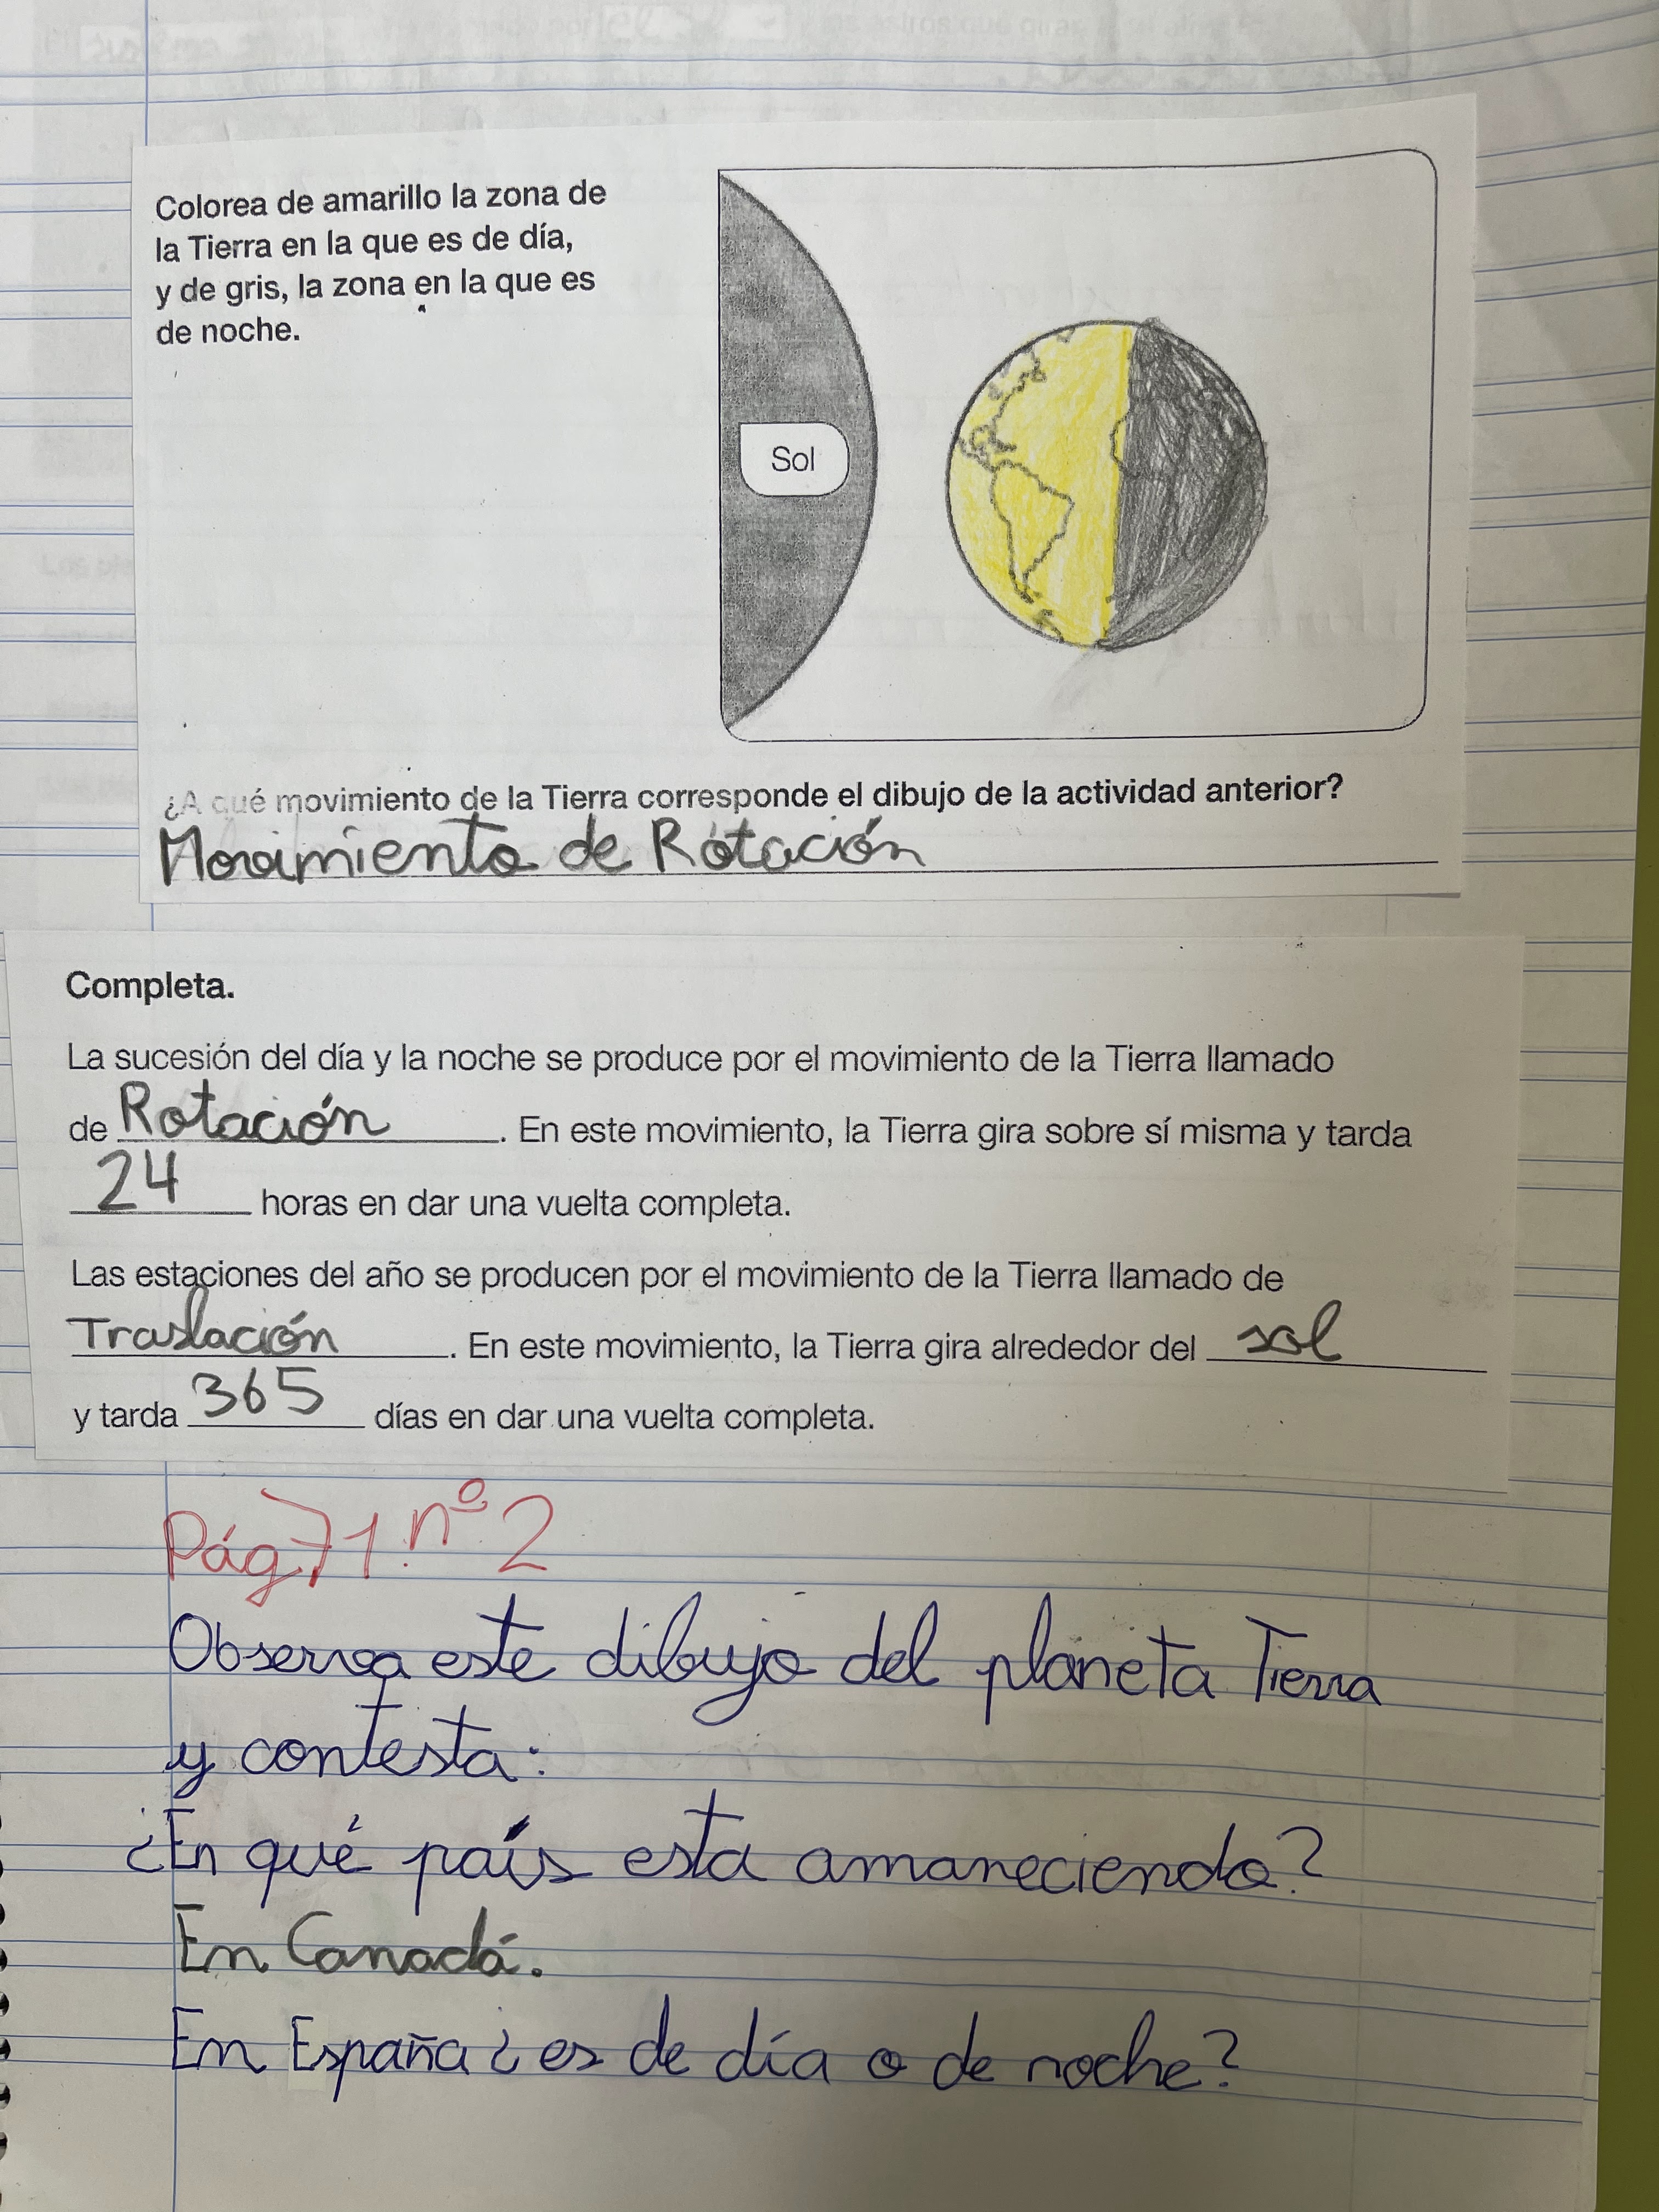 Colorea de amarillo la zona de
la Tierra en la que es de día,
y de gris, la zona en la que es
de noche.
Sol
¿A qué movimiento de la Tierra corresponde el dibujo de la actividad anterior?
Movimiento de Rotación
Completa.
La sucesión del día y la noche se produce por el movimiento de la Tierra llamado
de Rotación. En este movimiento, la Tierra gira sobre sí misma y tarda
24 horas en dar una vuelta completa.
Las estaciones del año se producen por el movimiento de la Tierra llamado de
Traslación. En este movimiento, la Tierra gira alrededor del sol
y tarda 365 días en dar una vuelta completa.
Pág 71. nº 2
Observa este dibujo del planeta Tierra
y contesta:
¿En qué país esta amaneciendo?
En Canadá.
En España ¿ es de día o de noche?